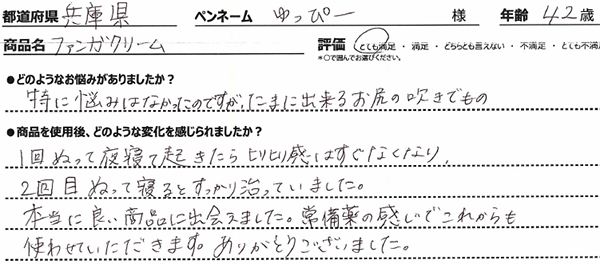 都道府県 兵庫県 ペンネーム ゆっぴー 様 年齢 42歳
商品名 ファンガクリーム 評価 とても満足 ・ 満足 ・ どちらとも言えない ・ 不満足 ・ とても不満
*○で囲んでお選びください。
●どのようなお悩みがありましたか？
特に悩みはなかったのですが、たまに出来るお尻の吹きでもの
●商品を使用後、どのような変化を感じられましたか？
1回ぬって夜寝て起きたらヒリヒリ感はすぐなくなり、
2回目ぬって寝るとすっかり治っていました。
本当に良い商品に出会えました。常備薬の感じでこれからも
使わせていただきます。ありがとうございました。